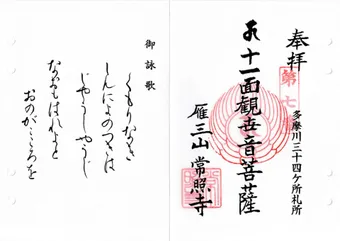 奉拝
第七
多摩川三十四ケ所札所
十一面觀世音菩薩
雁三山 常照寺
御詠歌
くもりなき
しんによのつきは
じやうしやうじ
なをもはれよと
おのがこゝろを